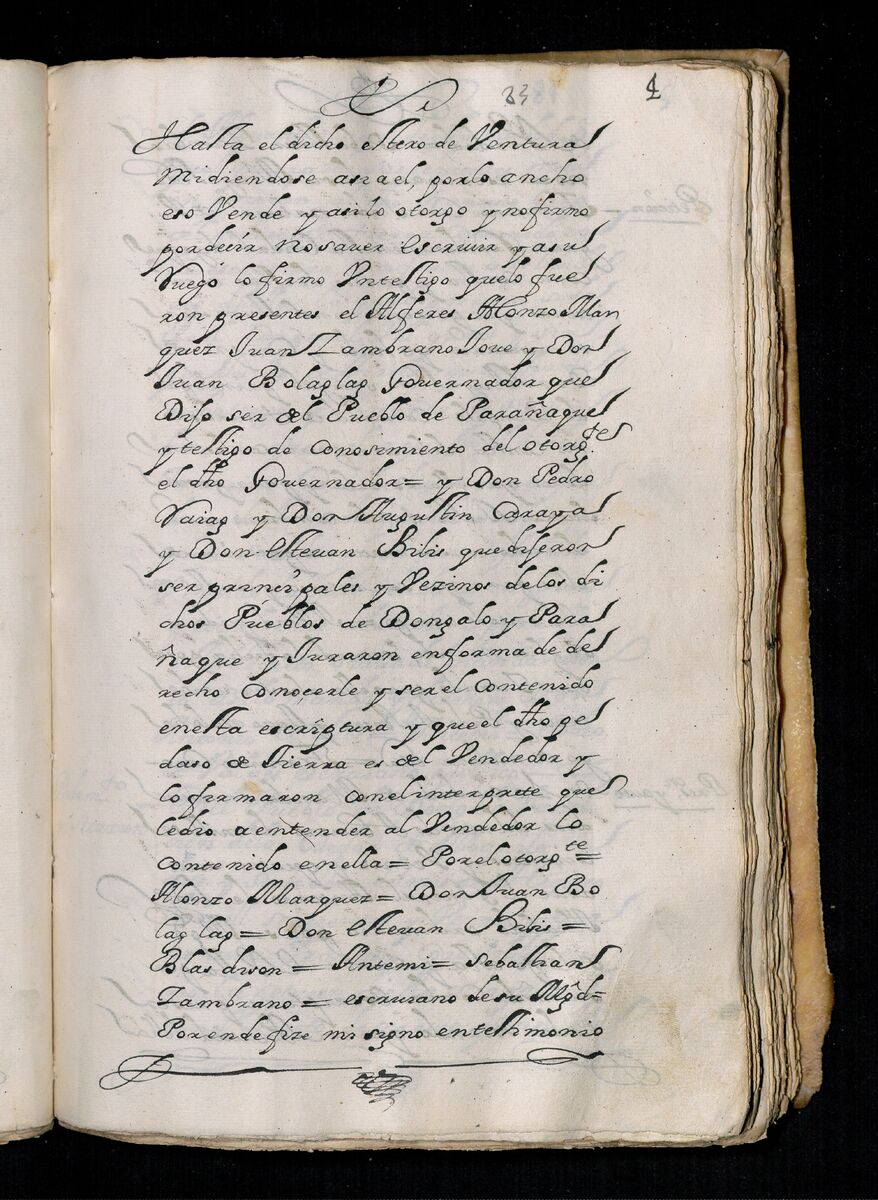 33
4
Hasta el dicho estero de Ventura
midiendose asi a el, por lo ancho
eso Vende y asi lo otorgo y nofirmo
por decir no saver escrivir y asu
Ruego lo firmo Vntestigo quelo fue
ron presentes el Alferes Alonzo Mar
quez Juan Zambrano Joue y Don
Juan Bolaglag Governador que
Diso ser del Pueblo de Parañaque
ytestigo de conosimiento del otorg.te
el dho Governador= y Don Pedro
Saiag y Don Augustin Caraya
y Don estevan Bibis que diseron
ser principales y Vezinos delos di
chos Pueblos de Dongalo y Para
ñaque y Juraron enforma de de
recho conoçerle y ser el contenido
enesta escriptura y que el dho pe
daso de Tierra es del Vendedor y
lo firmaron conelinterprete que
ledio a entender al Vendedor lo
contenido enella= Porelotorgte=
Alonzo Marquez= Don Juan Bo
lag lag= Don estevan Bibis=
Blas dison= Antemi= sebastian
Zambrano= escruano de su Mgd=
Porende fize mi signo entestimonio